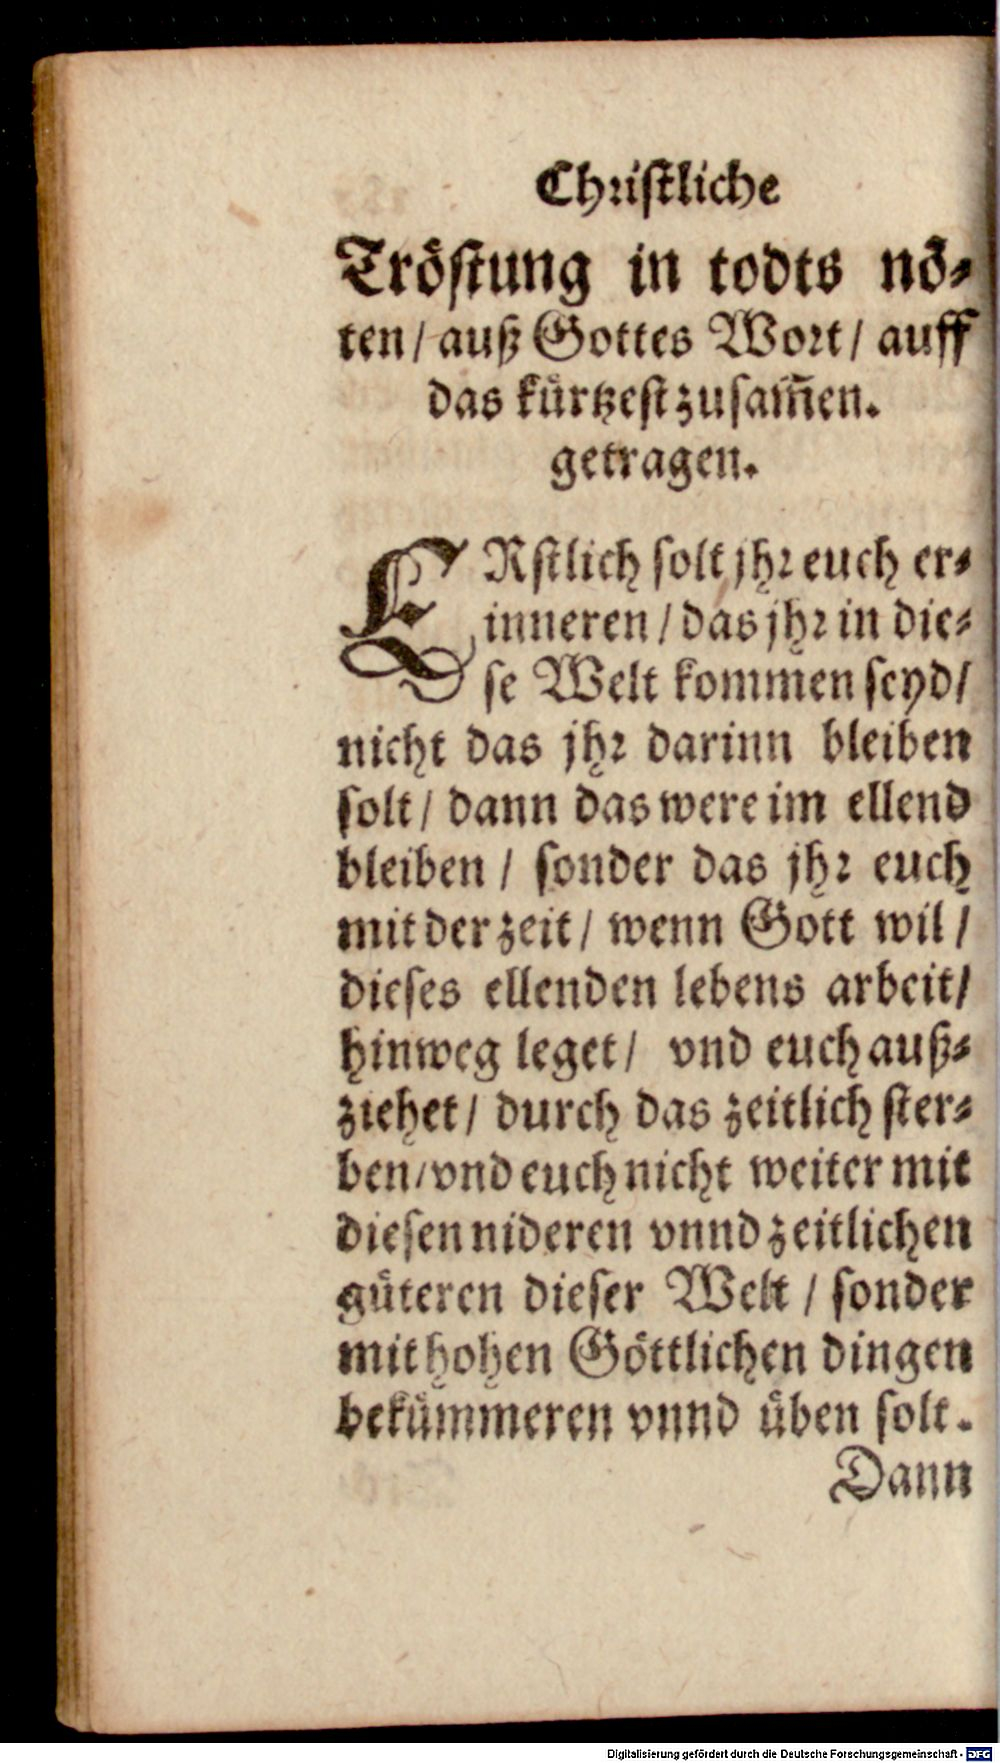 Christliche
Tröstung in todts nö-
ten / auß Gottes Wort / auff
das kürtzest zusam̃en.
getragen.
ERstlich solt jhr euch er-
inneren / das jhr in die-
se Welt kommen seyd /
nicht das jhr darinn bleiben
solt / dann das were im ellend
bleiben / sonder das jhr euch
mit der zeit / wenn Gott wil /
dieses ellenden lebens arbeit /
hinweg leget / vnd euch auß-
ziehet / durch das zeitlich ster-
ben / vnd euch nicht weiter mit
diesen nideren vnnd zeitlichen
güteren dieser Welt / sonder
mit hohen Göttlichen dingen
bekümmeren vnnd üben solt.
Dann
Digitalisierung gefördert durch die Deutsche Forschungsgemeinschaft - DFG